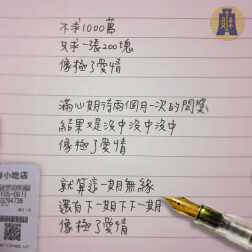 不求1000萬
只求一張200塊
像極了愛情
滿心期待兩個月一次的開獎
結果又是沒中沒中沒中
像極了愛情
就算這一期無緣
還有下一期下下一期
像極了愛情
小吃店